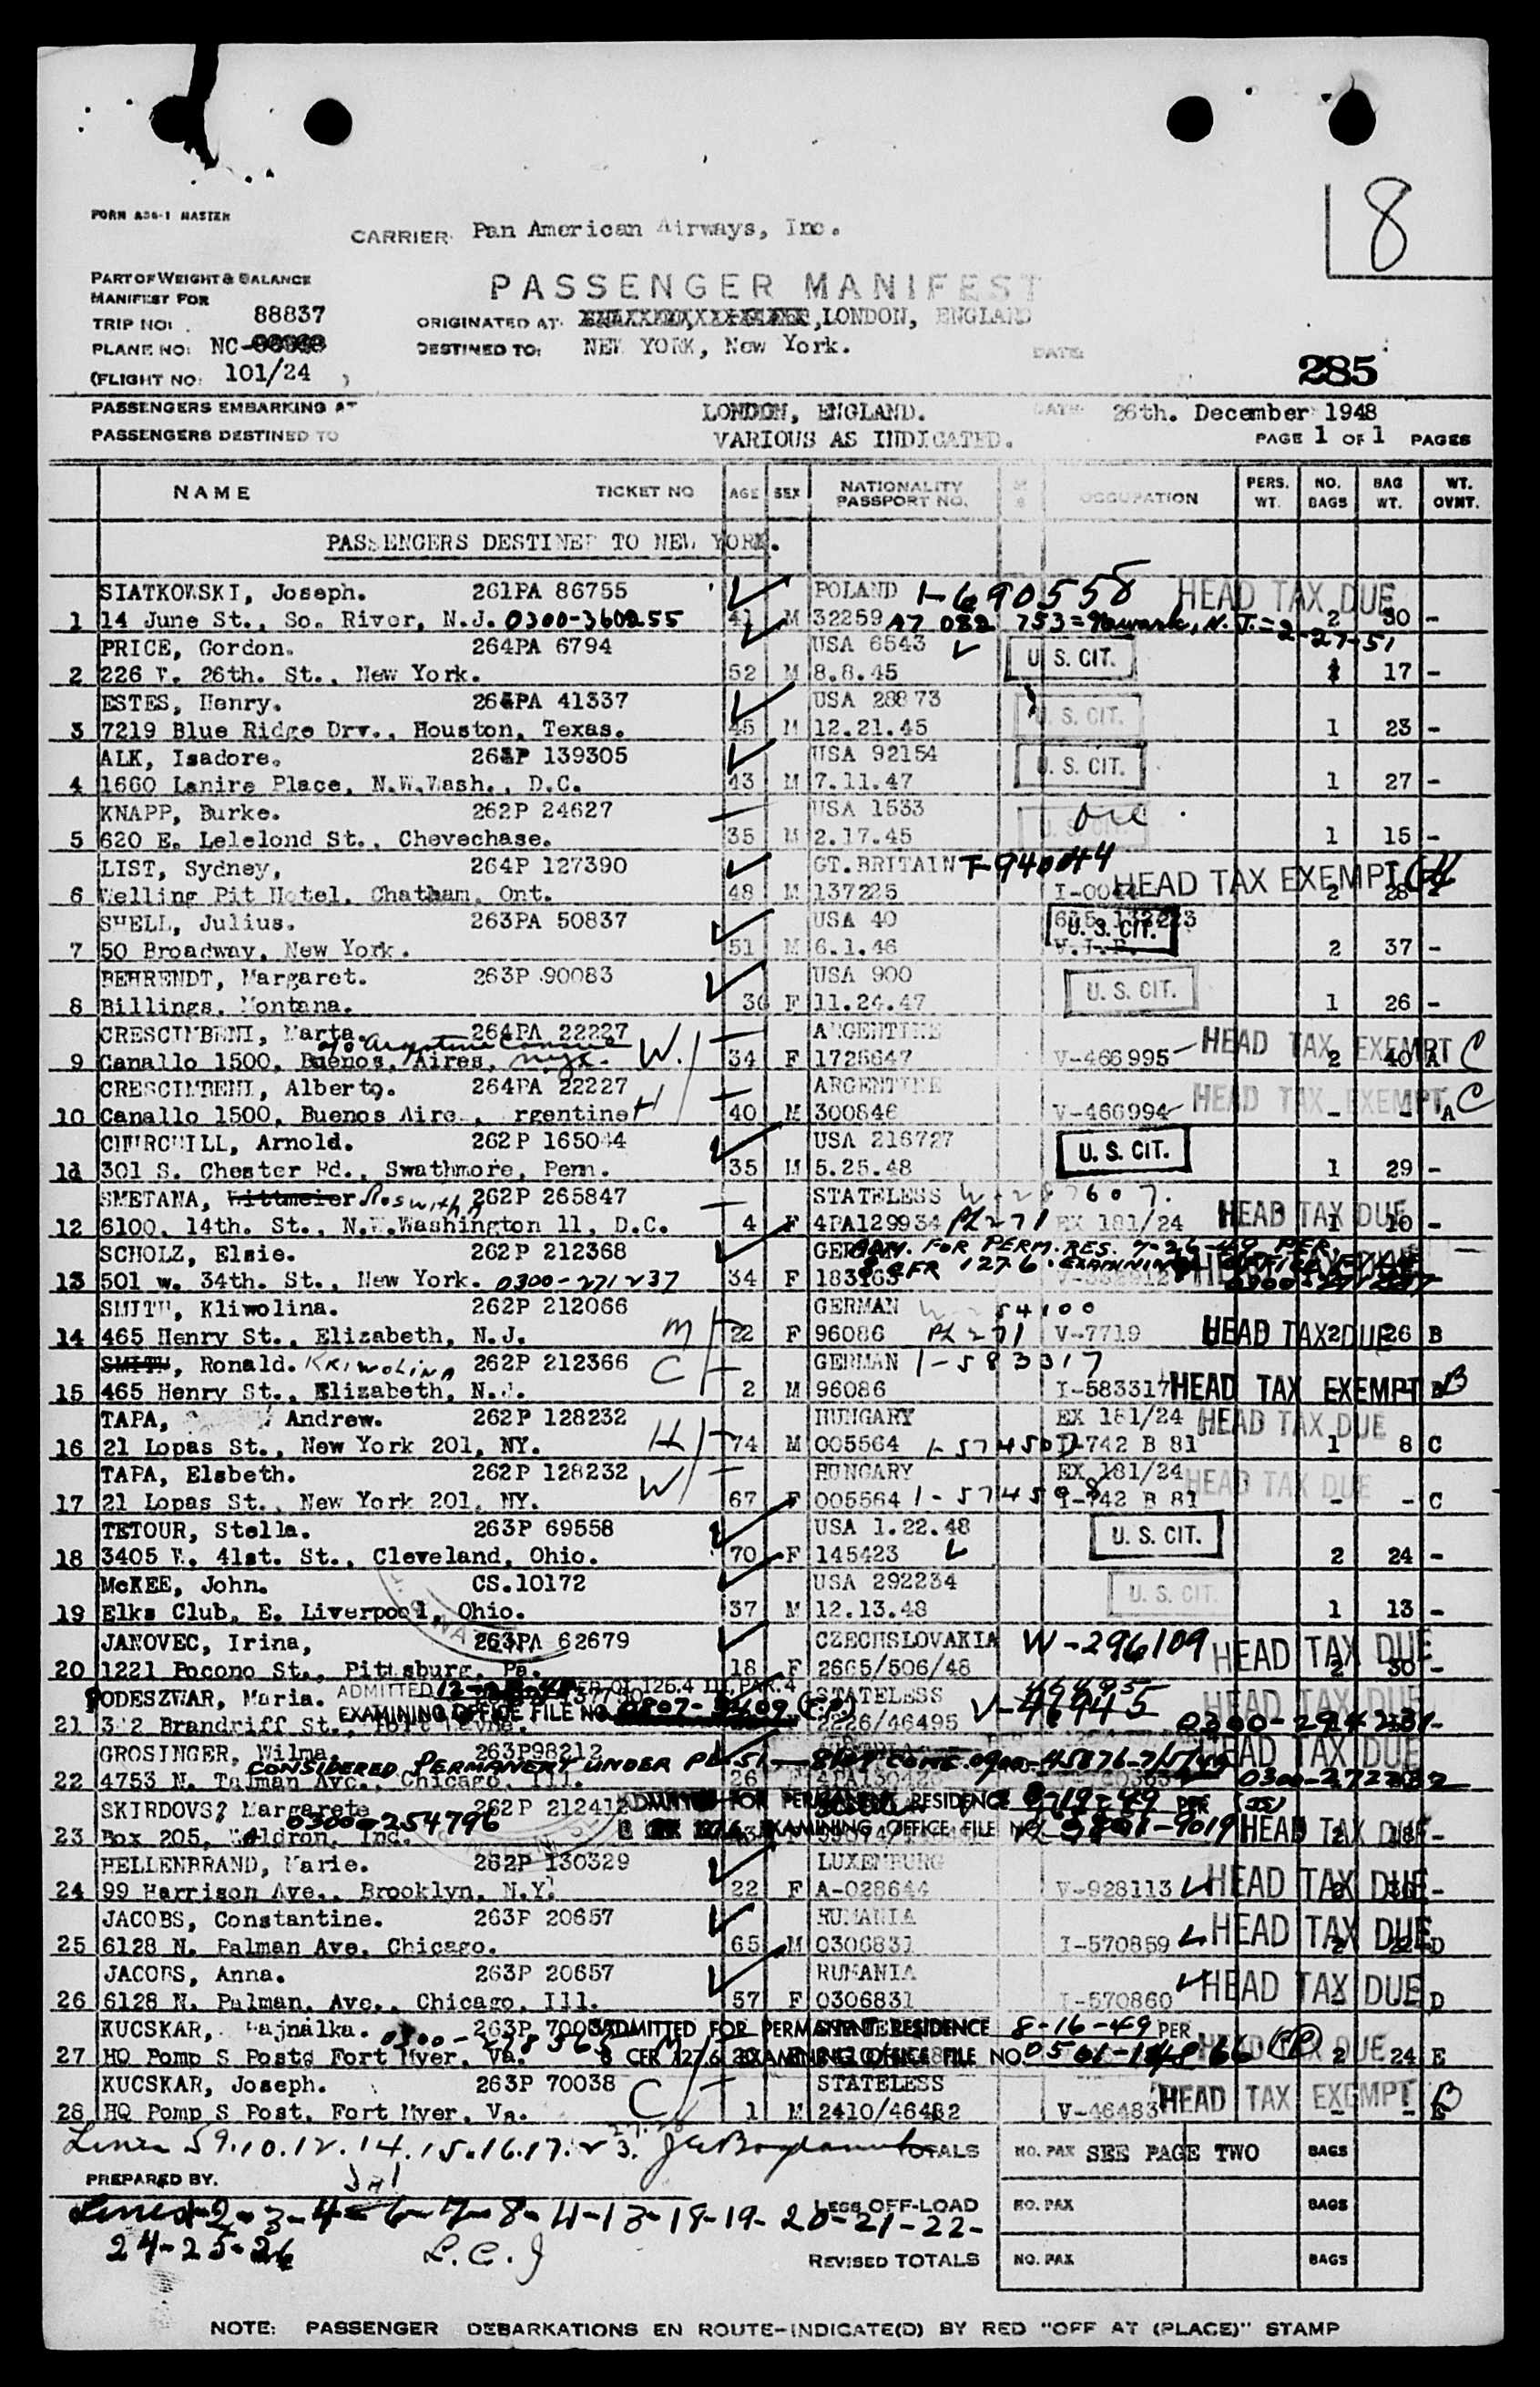 8
FORM A36-1 MASTER
CARRIER Pan American Airways, Inc.
PART OF WEIGHT & BALANCE
PASSENGER MANIFEST
MANIFEST FOR
TRIP NO: 88837
ORIGINATED AT: LONDON, ENGLAND
PLANE NO: NC-
DESTINED TO: NEW YORK, New York.
DATE:
285
(FLIGHT NO: 101/24 )
PASSENGERS EMBARKING AT LONDON, ENGLAND. DATE 26th. December 1948
PASSENGERS DESTINED TO VARIOUS AS INDICATED. PAGE 1 OF 1 PAGES
NAME TICKET NO AGE SEX NATIONALITY PASSPORT NO. OCCUPATION PERS. WT. NO. BAGS BAG WT. WT. OVNT.
PASSENGERS DESTINED TO NEW YORK.
SIATKOWSKI, Joseph. 261PA 86755 POLAND 1-690558 HEAD TAX DUE
1 14 June St., So. River, N.J. 0300-360255 41 M 32259 A7 082 753=Newark, N.J.=2-27-51 2 30 -
PRICE, Gordon. 264PA 6794 USA 6543 U.S. CIT.
2 226 W. 26th. St., New York. 52 M 8.8.45 17 -
ESTES, Henry. 264PA 41337 USA 28873 U.S. CIT.
3 7219 Blue Ridge Drv., Houston, Texas. 45 M 12.21.45 1 23 -
ALK, Isadore. 139305 USA 92154 U.S. CIT.
4 1660 Lanire Place, N.W.Wash., D.C. 43 M 7.11.47 1 27 -
KNAPP, Burke. 262P 24627 USA 1533 U.S. CIT.
5 620 E. Lelelond St., Chevechase. 35 M 2.17.45 1 15 -
LIST, Sydney, 264P 127390 GT.BRITAIN T-940044 HEAD TAX EXEMPT
6 Welling Pit Hotel, Chatham, Ont. 48 M 137225 2 28 -
SHELL, Julius. 263PA 50837 USA 40 U.S. CIT.
7 50 Broadway, New York. 51 M 6.1.46 2 37 -
BEHRENDT, Margaret. 263P 90083 USA 900 U.S. CIT.
8 Billings, Montana. 36 F 11.24.47 1 26 -
CRESCIMBENI, Marta. 264PA 22227 ARGENTINE HEAD TAX EXEMPT C
c/o Argentine Consul nyc. W.
9 Canallo 1500, Buenos, Aires, 34 F 1726647 V-466995 2 40 A
CRESCIMBENI, Alberto. 264PA 22227 ARGENTINE HEAD TAX EXEMPT C
10 Canallo 1500, Buenos Aire., rgentine H 40 M 300846 V-466994 - - A
CHURCHILL, Arnold. 262P 165044 USA 216727 U.S. CIT.
11 301 S. Chester Rd., Swathmore, Penn. 35 M 5.25.48 1 29 -
SMETANA, Wittmeier Roswitha 262P 265847 STATELESS HEAD TAX DUE
12 6100, 14th. St., N.W.Washington 11, D.C. 4 F 4PA129934 PL 271 EX 181/24 1 10 -
SCHOLZ, Elsie. 262P 212368 ADM. FOR PERM. RES. 7-26-49 PER
13 501 w. 34th. St., New York. 0300-271237 34 F 183163 8 CFR 127.6. EXAMINING
SMITH, Kliwolina. 262P 212066 GERMAN HEAD TAX DUE
14 465 Henry St., Elizabeth, N.J. M 22 F 96086 PL 271 V-7719 2 26 B
SMITH, Ronald. KRIWOLINA 262P 212366 GERMAN 1-583317 HEAD TAX EXEMPT B
15 465 Henry St., Elizabeth, N.J. C 2 M 96086 I-583317
TAPA, Andrew. 262P 128232 HUNGARY EX 181/24 HEAD TAX DUE
16 21 Lopas St., New York 201, NY. H 74 M 005564 I-742 B 81 1 8 C
TAPA, Elsbeth. 262P 128232 HUNGARY EX 181/24 HEAD TAX DUE
17 21 Lopas St., New York 201, NY. W 67 F 005564 I-742 B 81 - - C
TETOUR, Stella. 263P 69558 USA 1.22.48 U.S. CIT.
18 3405 W. 41st. St., Cleveland, Ohio. 70 F 145423 2 24 -
McKEE, John. CS.10172 USA 292234 U.S. CIT.
19 Elks Club, E. Liverpool, Ohio. 37 M 12.13.48 1 13 -
JANOVEC, Irina, 263PA 62679 CZECHSLOVAKIA W-296109 HEAD TAX DUE
20 1221 Pocono St., Pittsburg, Pa. 18 F 2665/506/48 2 30 -
PODESZWAR, Maria. ADMITTED STATELESS HEAD TAX DUE
21 Brandriff St., EXAMINING OFFICE FILE NO. 2226/46495 V-46945
GROSINGER, Wilma. 263P98212 HEAD TAX DUE
CONSIDERED PERMANENT UNDER
22 4753 N. Talman Ave., Chicago, Ill. 26
SKIRDOVS? Margarete 262P 212412 ADMITTED FOR PERMANENT RESIDENCE PER
0300-254796
23 Box 205, Waldron, Ind. EXAMINING OFFICE FILE NO. HEAD TAX DUE
HELLENBRAND, Marie. 262P 130329 LUXEMBURG
24 99 Harrison Ave., Brooklyn, N.Y. 22 F A-028644 V-928113 HEAD TAX DUE
JACOBS, Constantine. 263P 20657 RUMANIA HEAD TAX DUE
25 6128 N. Palman Ave. Chicago. 65 M 0306831 I-570859 D
JACOBS, Anna. 263P 20657 RUMANIA HEAD TAX DUE
26 6128 N. Palman, Ave., Chicago, Ill. 57 F 0306831 I-570860 D
KUCSKAR, Hajnalka. 263P 70038 ADMITTED FOR PERMANENT RESIDENCE 8-16-49 PER
27 HQ Pomp S Posts Fort Myer, Va. 8 CFR 127.6 EXAMINING OFFICE FILE NO. HEAD TAX DUE 2 24 E
KUCSKAR, Joseph. 263P 70038 STATELESS HEAD TAX EXEMPT
28 HQ Pomp S Post, Fort Myer, Va. C 1 M 2410/46482 V-46483
Lines 5 9.10.12.14.15.16.17. 23. TOTALS NO. PAX SEE PAGE TWO BAGS
PREPARED BY.
Lines 1-2-3-4-6-7-8-11-13-18-19-20-21-22- LESS OFF-LOAD NO. PAX BAGS
24-25-26 L.C.J REVISED TOTALS NO. PAX BAGS
NOTE: PASSENGER DEBARKATIONS EN ROUTE-INDICATE(D) BY RED "OFF AT (PLACE)" STAMP